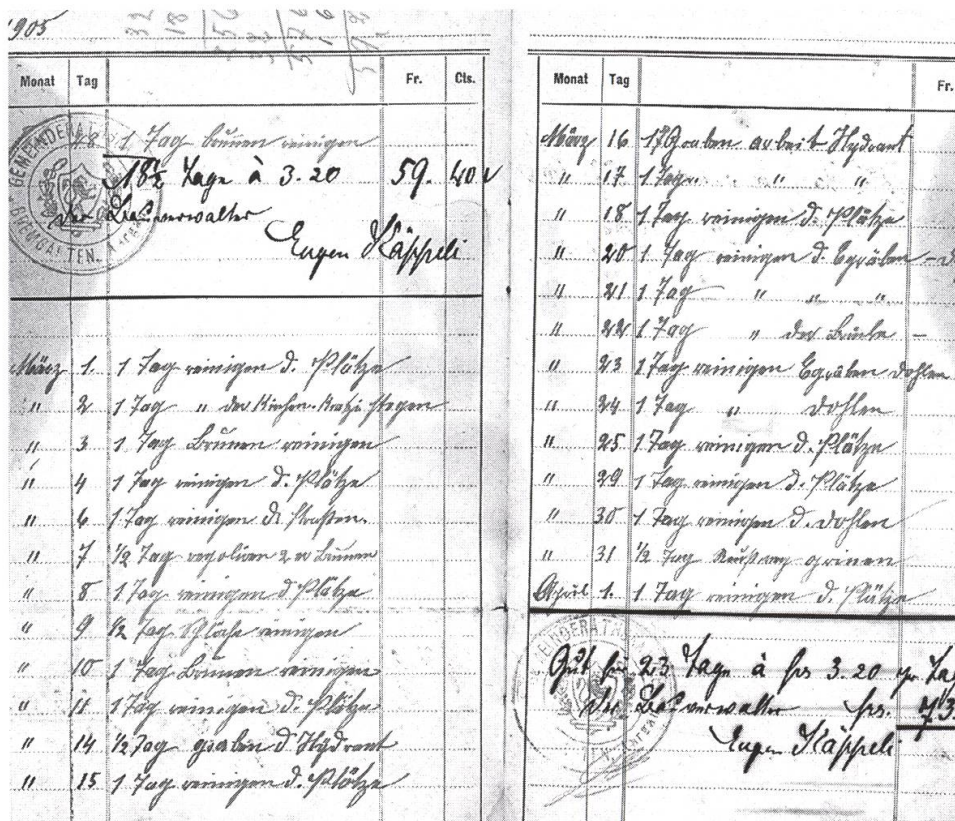 1905
Monat Tag Fr. Cts.
28. 1 Tag brunnen reinigen
18½ Tage à 3.20 59. 40
der Bauverwalter
Eugen Käppeli
März 1. 1 Tag reinigen d. Plätze
" 2 1 Tag " der Kirchen stegen
" 3 1 Tag Brunnen reinigen
" 4 1 Tag reinigen d. Plätze
" 6 1 Tag reinigen d. Strassen.
" 7 ½ Tag Brunnen
" 8 1 Tag reinigen d. Plätze
" 9 ½ Tag reinigen
" 10 1 Tag Brunnen reinigen
" 11 1 Tag reinigen d. Plätze
" 14 ½ Tag graben d. Hydrant
" 15 1 Tag reinigen d. Plätze
Monat Tag Fr.
März 16 1 Tag Graben arbeit Hydrant
" 17 1 Tag " " "
" 18 1 Tag reinigen d. Plätze
" 20 1 Tag reinigen d. Egräben
" 21 1 Tag " " "
" 22 1 Tag " der
" 23 1 Tag reinigen Egraben dohlen
" 24 1 Tag " dohlen
" 25 1 Tag reinigen d. Plätze
" 29 1 Tag reinigen d. Plätze
" 30 1 Tag reinigen d. dohlen
" 31 ½ Tag
April 1. 1 Tag reinigen d. Plätze
Gut für 23 Tage à frs 3.20 pr Tag
der Bauverwalter frs. 73.
Eugen Käppeli